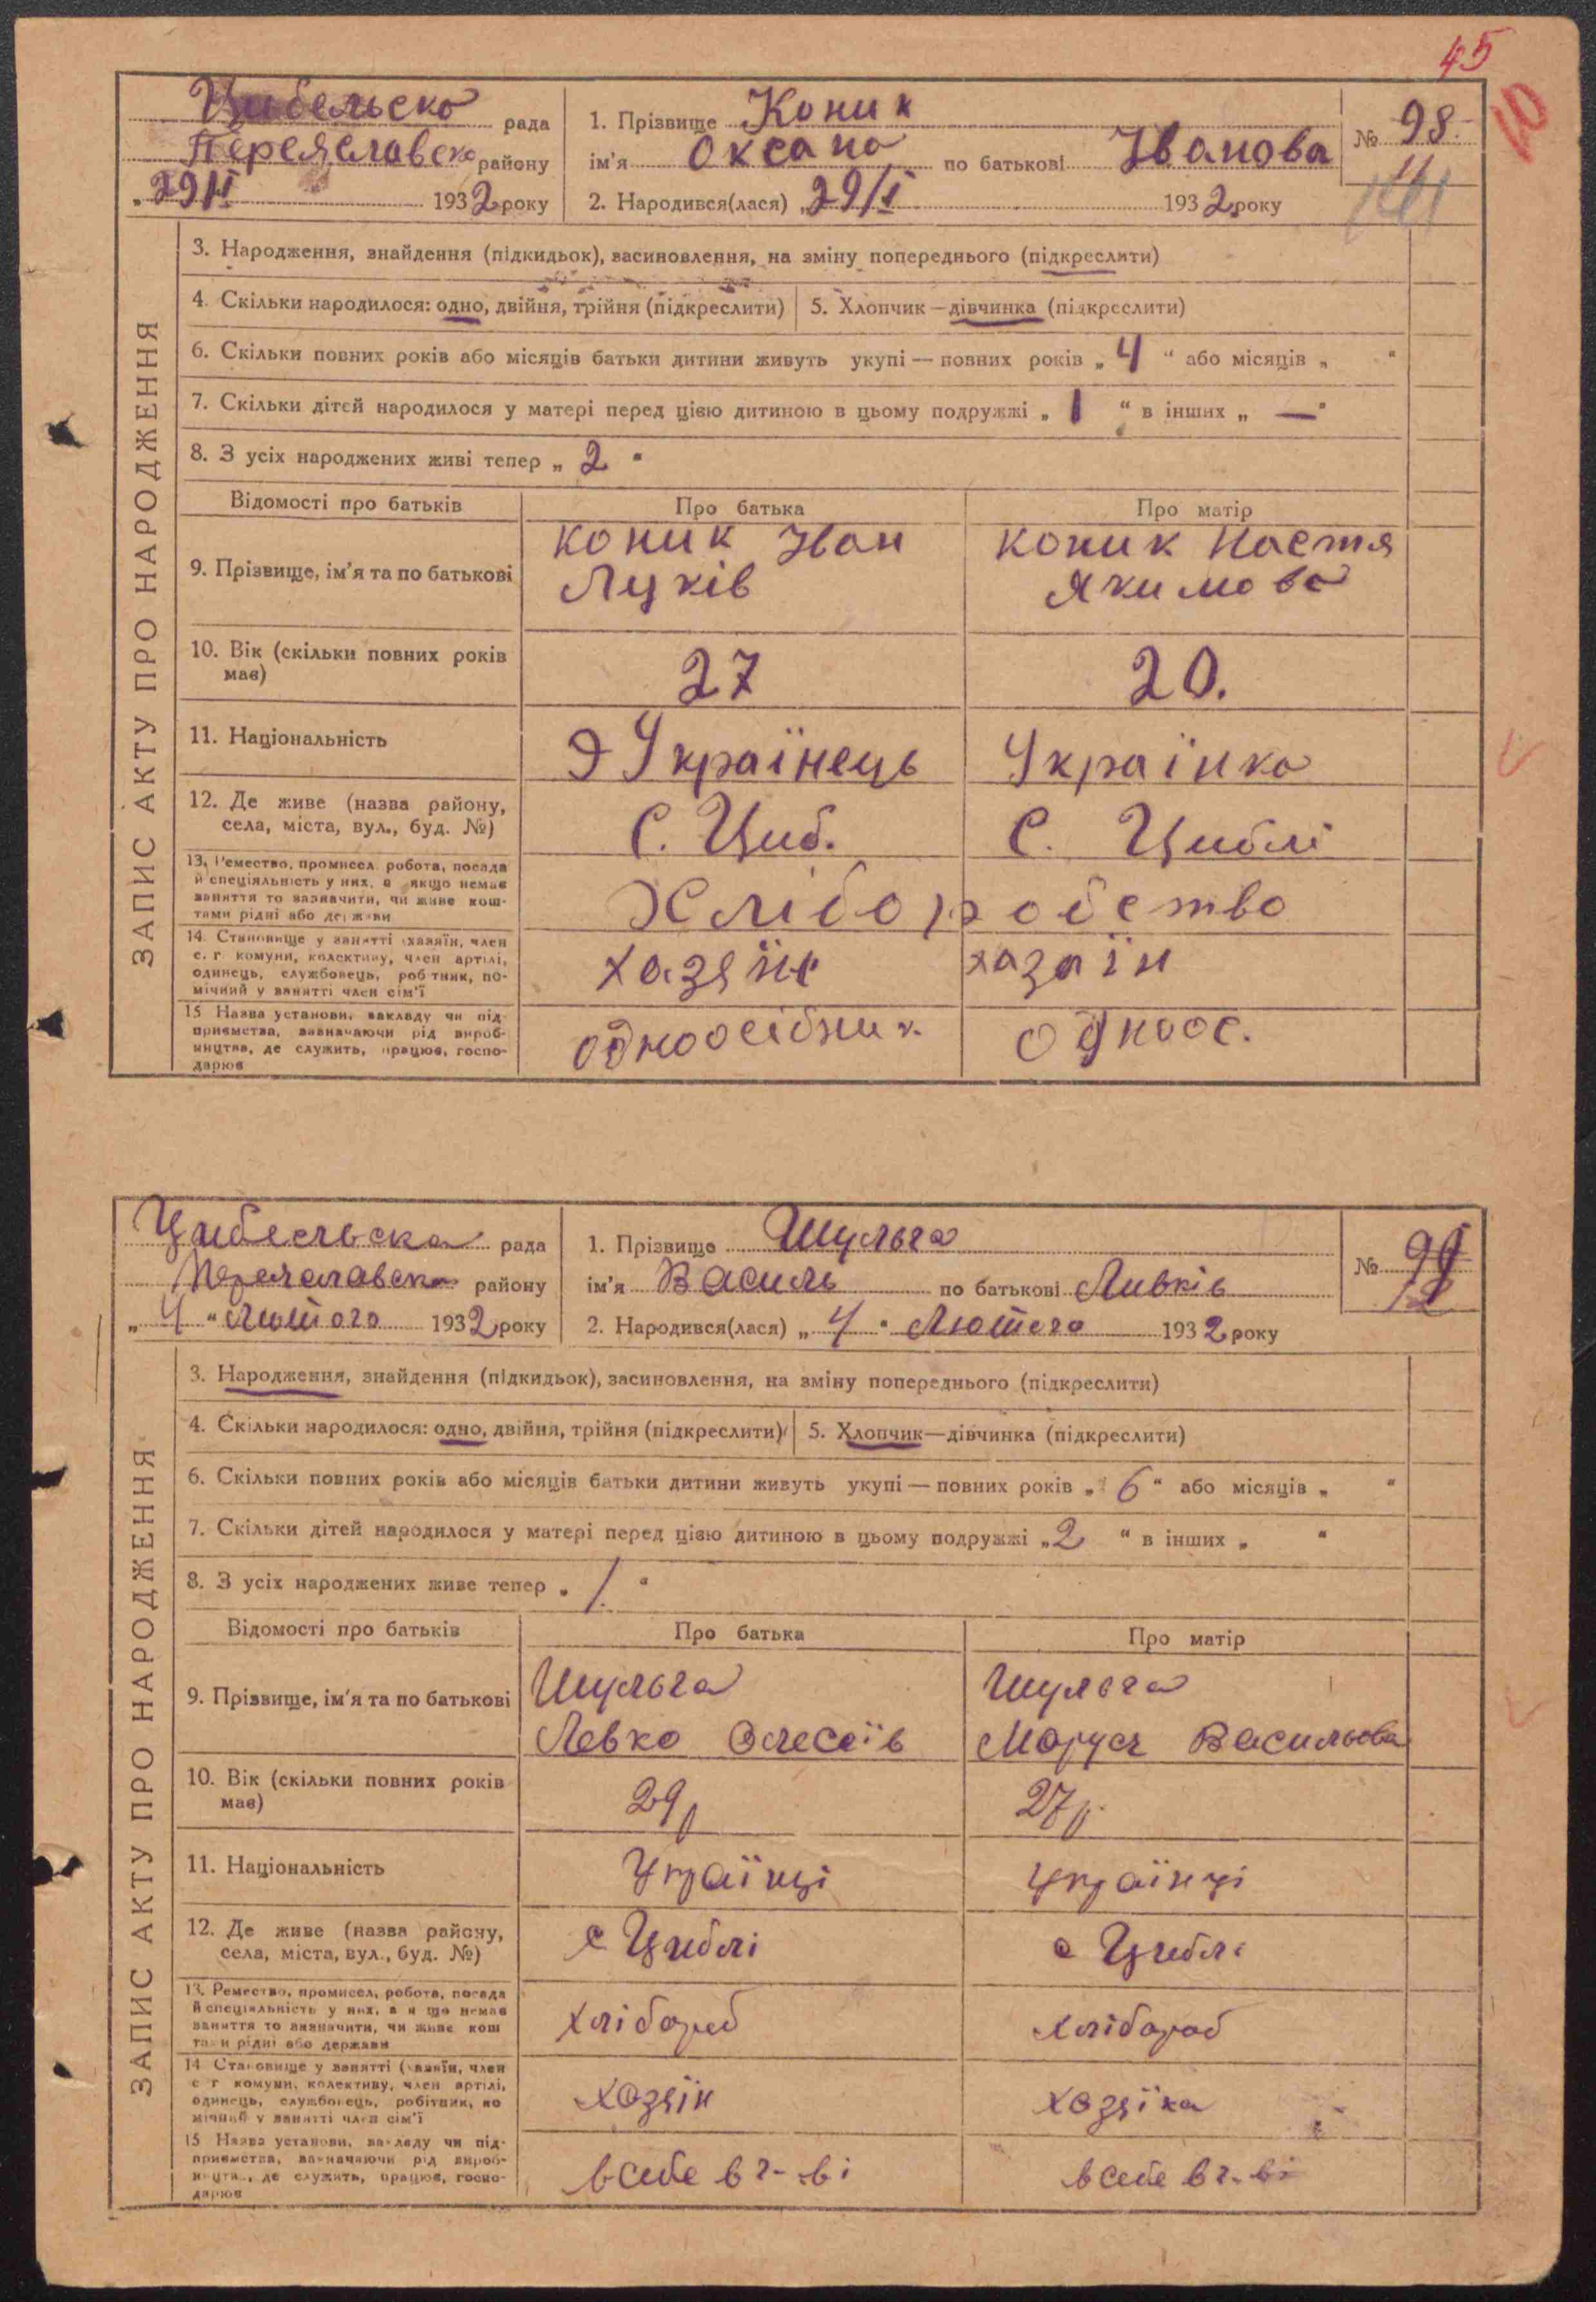 45
10
Цибельска рада
Переяславська району
"29/I 1932 року
1. Прізвище Коник
ім'я Оксана по батькові Іванова
2. Народився(лася) „29/I 1932 року
№ 98
11
ЗАПИС АКТУ ПРО НАРОДЖЕННЯ
3. Народження, знайдення (підкидьок), засиновлення, на зміну попереднього (підкреслити)
4. Скільки народилося: одно, двійня, трійня (підкреслити) 5. Хлопчик—дівчинка (підкреслити)
6. Скільки повних років або місяців батьки дитини живуть укупі — повних років „4" або місяців „ "
7. Скільки дітей народилося у матері перед цією дитиною в цьому подружжі „1" в інших „—"
8. З усіх народжених живі тепер „2"
Відомості про батьків Про батька Про матір
9. Прізвище, ім'я та по батькові
Коник Іван
Луків
Коник Настя
Якимова
10. Вік (скільки повних років має)
27 20.
11. Національність
Українець Українка
12. Де живе (назва району,
села, міста, вул., буд. №)
С. Циб. С. Циблі
13. Ремество, промисел, робота, посада
й спеціяльність у них, а якщо немає
заняття то зазначити, чи живе кош-
тами рідні або держави
Хліборобство
14. Становище у занятті (хазяїн, член
с. г комуни, колективу, член артілі,
одинець, службовець, робітник, по-
мічний у занятті член сім'ї
хазяїн хазаін
15 Назва установи, закладу чи під-
приємства, зазначаючи рід вироб-
ництва, де служить, працює, госпо-
дарює
одноосібник. одноос.
Цибельська рада
Переяславська району
„4" Лютого 1932 року
1. Прізвище Шульга
ім'я Василь по батькові Левків
2. Народився(лася) „4" Лютого 1932 року
№ 99
12
ЗАПИС АКТУ ПРО НАРОДЖЕННЯ
3. Народження, знайдення (підкидьок), засиновлення, на зміну попереднього (підкреслити)
4. Скільки народилося: одно, двійня, трійня (підкреслити) 5. Хлопчик—дівчинка (підкреслити)
6. Скільки повних років або місяців батьки дитини живуть укупі — повних років „6" або місяців „ "
7. Скільки дітей народилося у матері перед цією дитиною в цьому подружжі „2" в інших „ "
8. З усіх народжених живе тепер „1."
Відомості про батьків Про батька Про матір
9. Прізвище, ім'я та по батькові
Шульга
Левко Олесіїв
Шульга
Маруся Васильова
10. Вік (скільки повних років
має)
29р 27р.
11. Національність
Українці українці
12. Де живе (назва району,
села, міста, вул., буд. №)
с Циблі с Циблі
13. Ремество, промисел, робота, посада
й спеціяльність у них, а якщо немає
заняття то зазначити, чи живе кош
тами рідні або держави
хлібороб хлібороб
14 Становище у занятті (хазяїн, член
с г комуни, колективу, член артілі,
одинець, службовець, робітник, по
мічний у занятті член сім'ї
хозяїн хозяїка
15 Назва установи, закладу чи під-
приємства, зазначаючи рід вироб-
ництва, де служить, працює, госпо-
дарює
в себе в г-ві в себе в г-ві